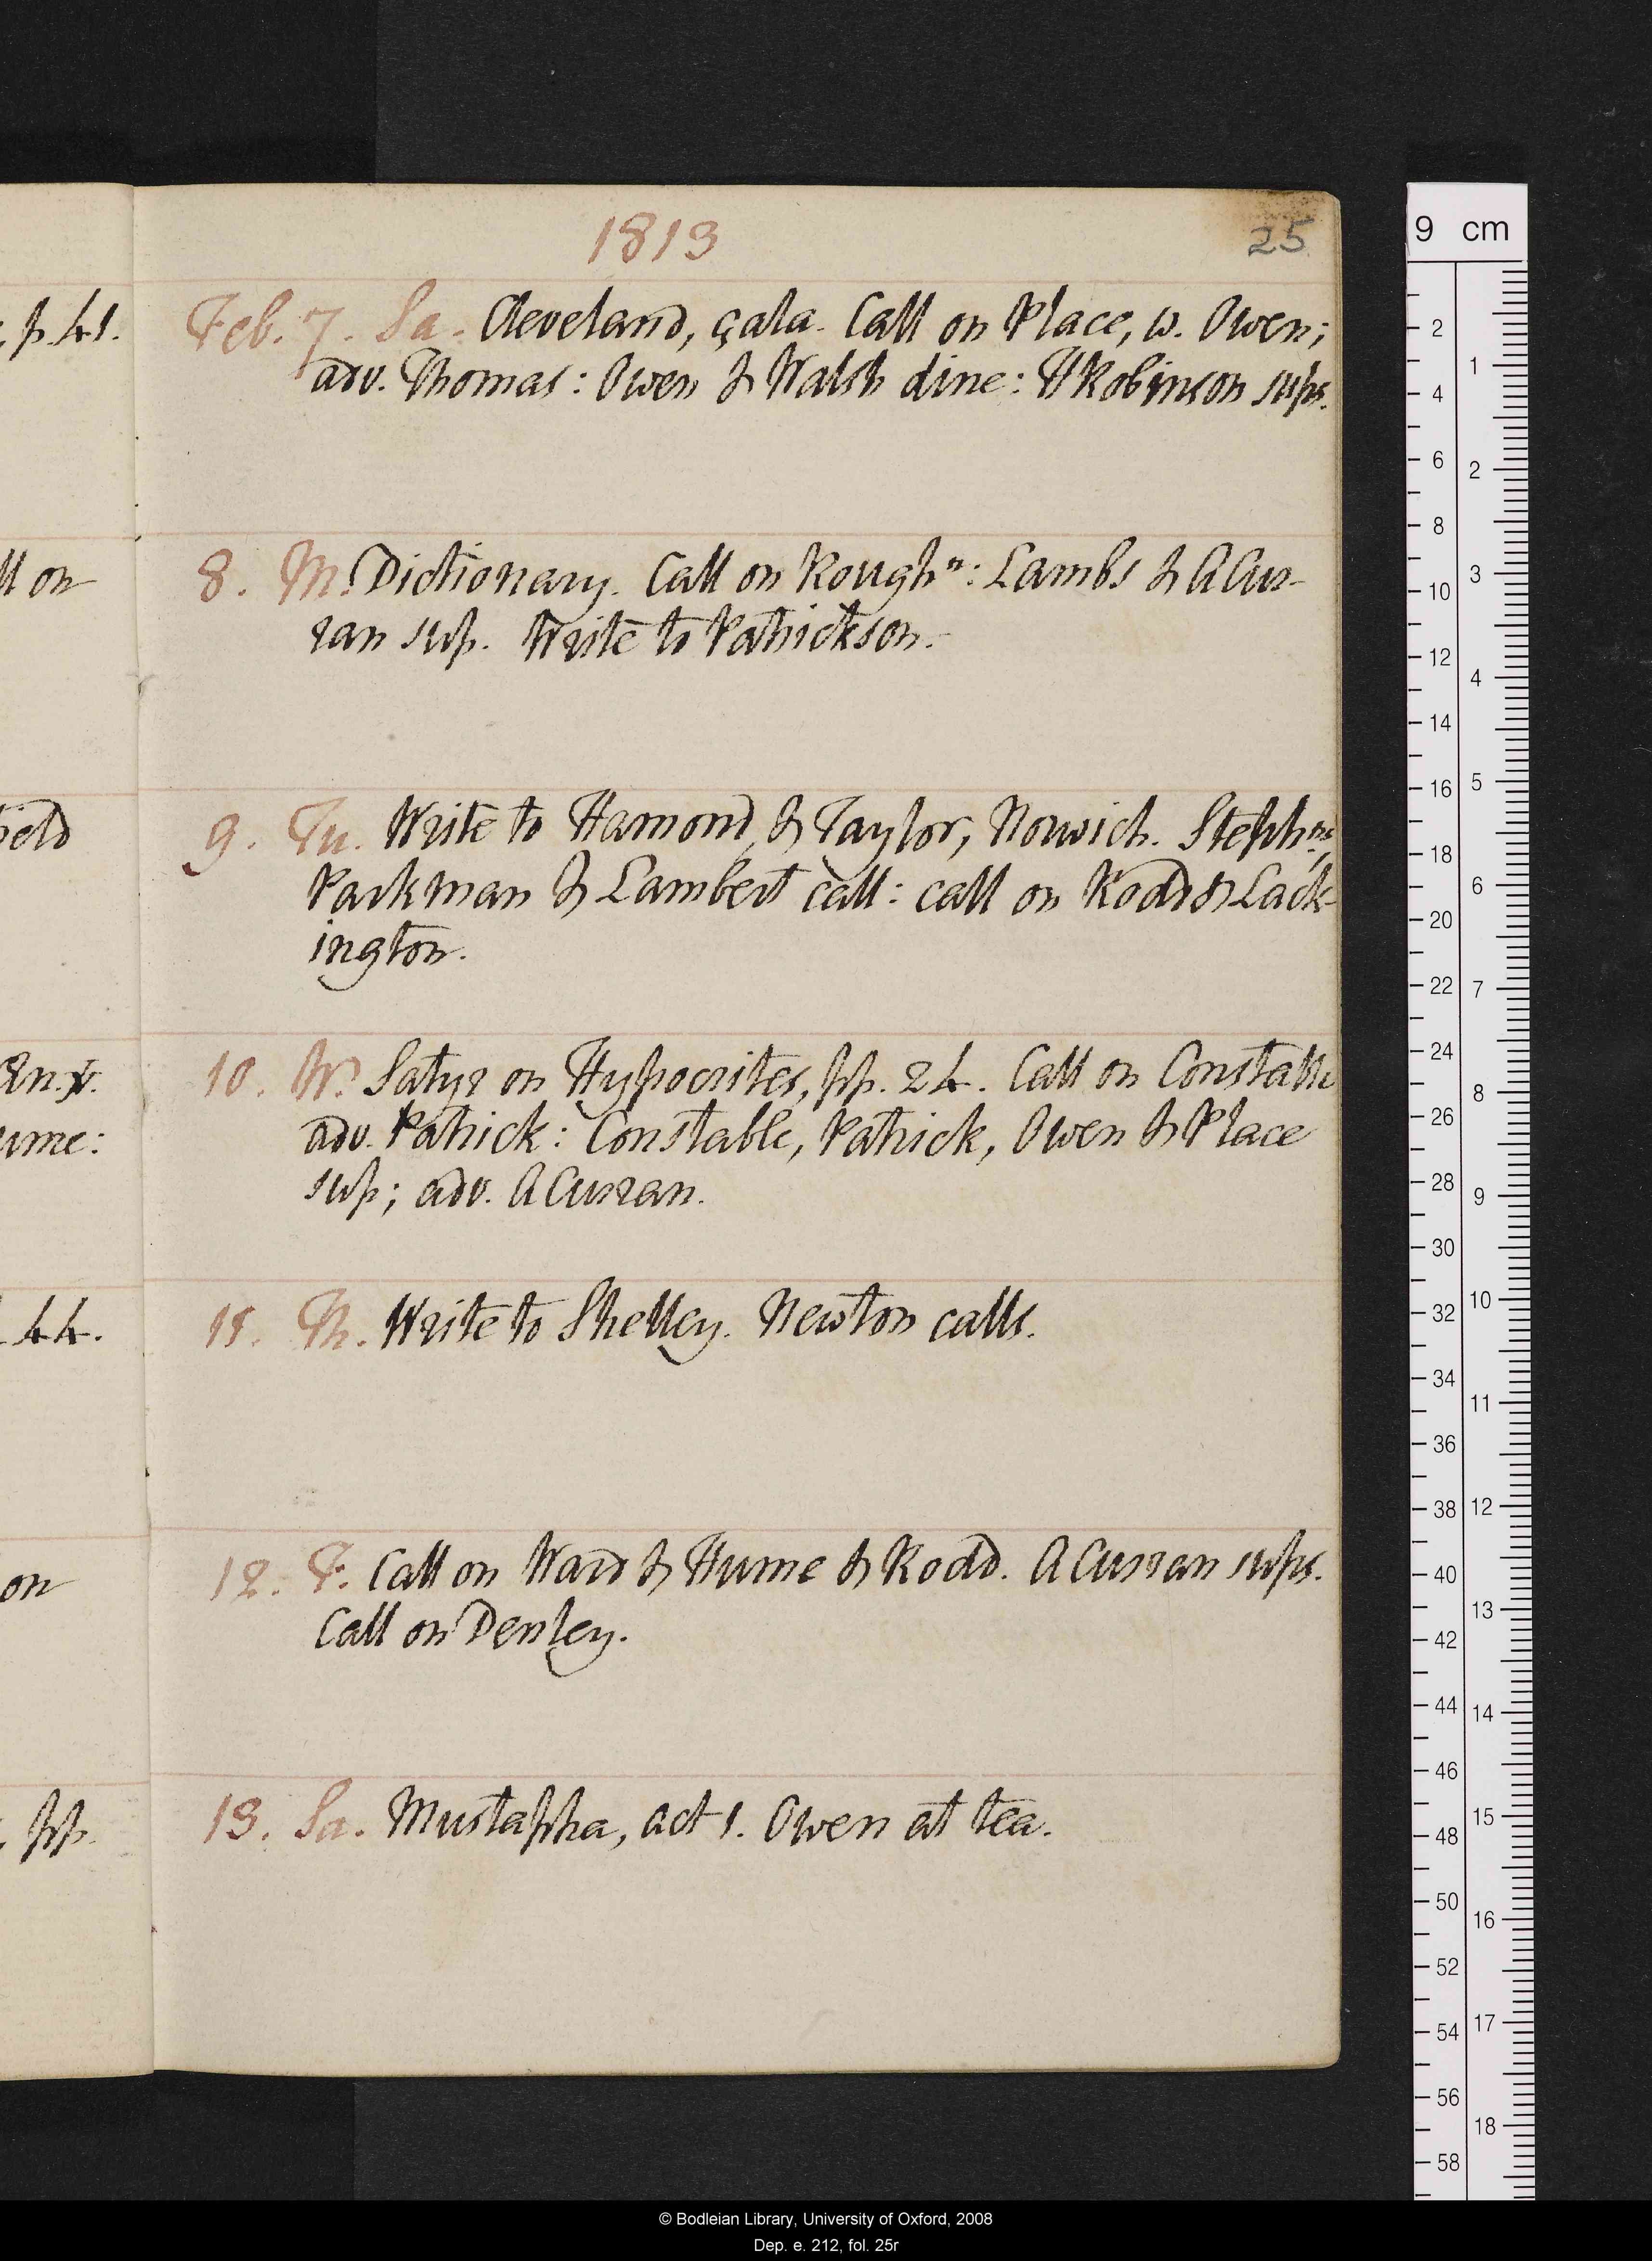 1813
25
p. 41.
Feb. 7. Sa. Cleveland, çala. Call on Place, w. Owen;
adv. Thomas: Owen & Walsh dine: H Robinson sups.
ll on
8. M. Dictionary. Call on Roughn: Lambs & A Cur-
ran sup. Write to Patrickson.
ield
9. Tu. Write to Hamond, & Taylor, Norwich. Stephns,
Parkman & Lambert call: call on Rodd & Lack-
ington.
10. W. Satyr on Hypocrites, pp. 24. Call on Constable
adv. Patrick: Constable, Patrick, Owen & Place
ume:
sup; adv. A Curran.
44.
11. Th. Write to Shelley. Newton calls.
on
12. F. Call on Ward & Hume & Rodd. A Curran sups.
Call on Denley.
pp.
13. Sa. Mustapha, act 1. Owen at tea.
9 cm
2 4 6 8 10 12 14 16 18 20 22 24 26 28 30 32 34 36 38 40 42 44 46 48 50 52 54 56 58
1 2 3 4 5 6 7 8 9 10 11 12 13 14 15 16 17 18
© Bodleian Library, University of Oxford, 2008
Dep. e. 212, fol. 25r